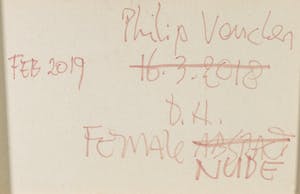 Philip Vencken
FEB 2019 16.3.2018
D.H.
FEMALE ABSTRACT
NUDE